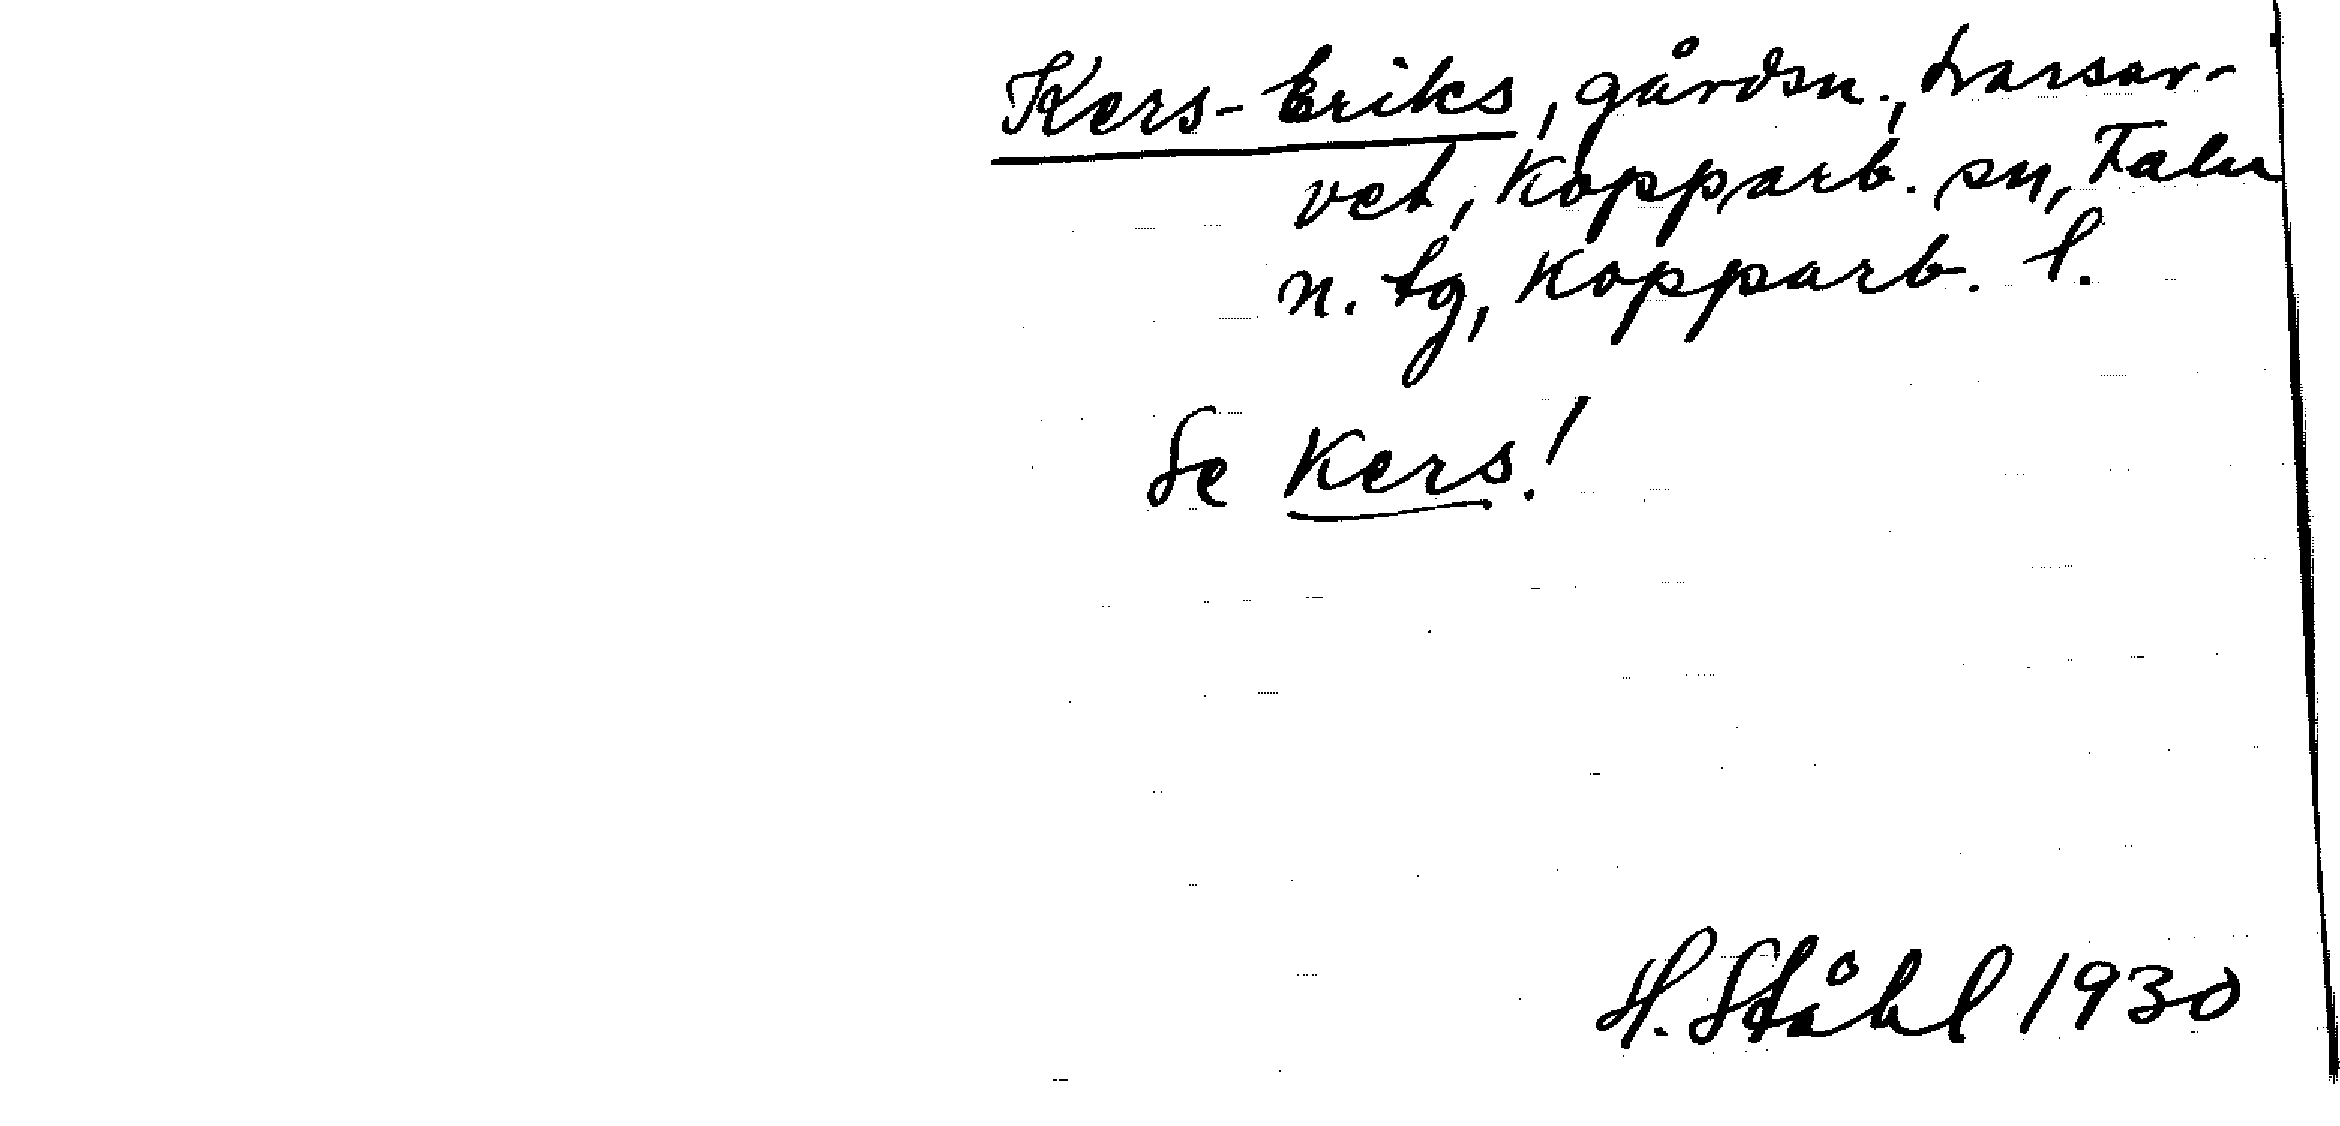 Kers-Eriks, gårdsn., Varsar-
vet, Kopparb. sn, Falu
n. tg, Kopparb. l.
Se Kers!
H. Ståhl 1930